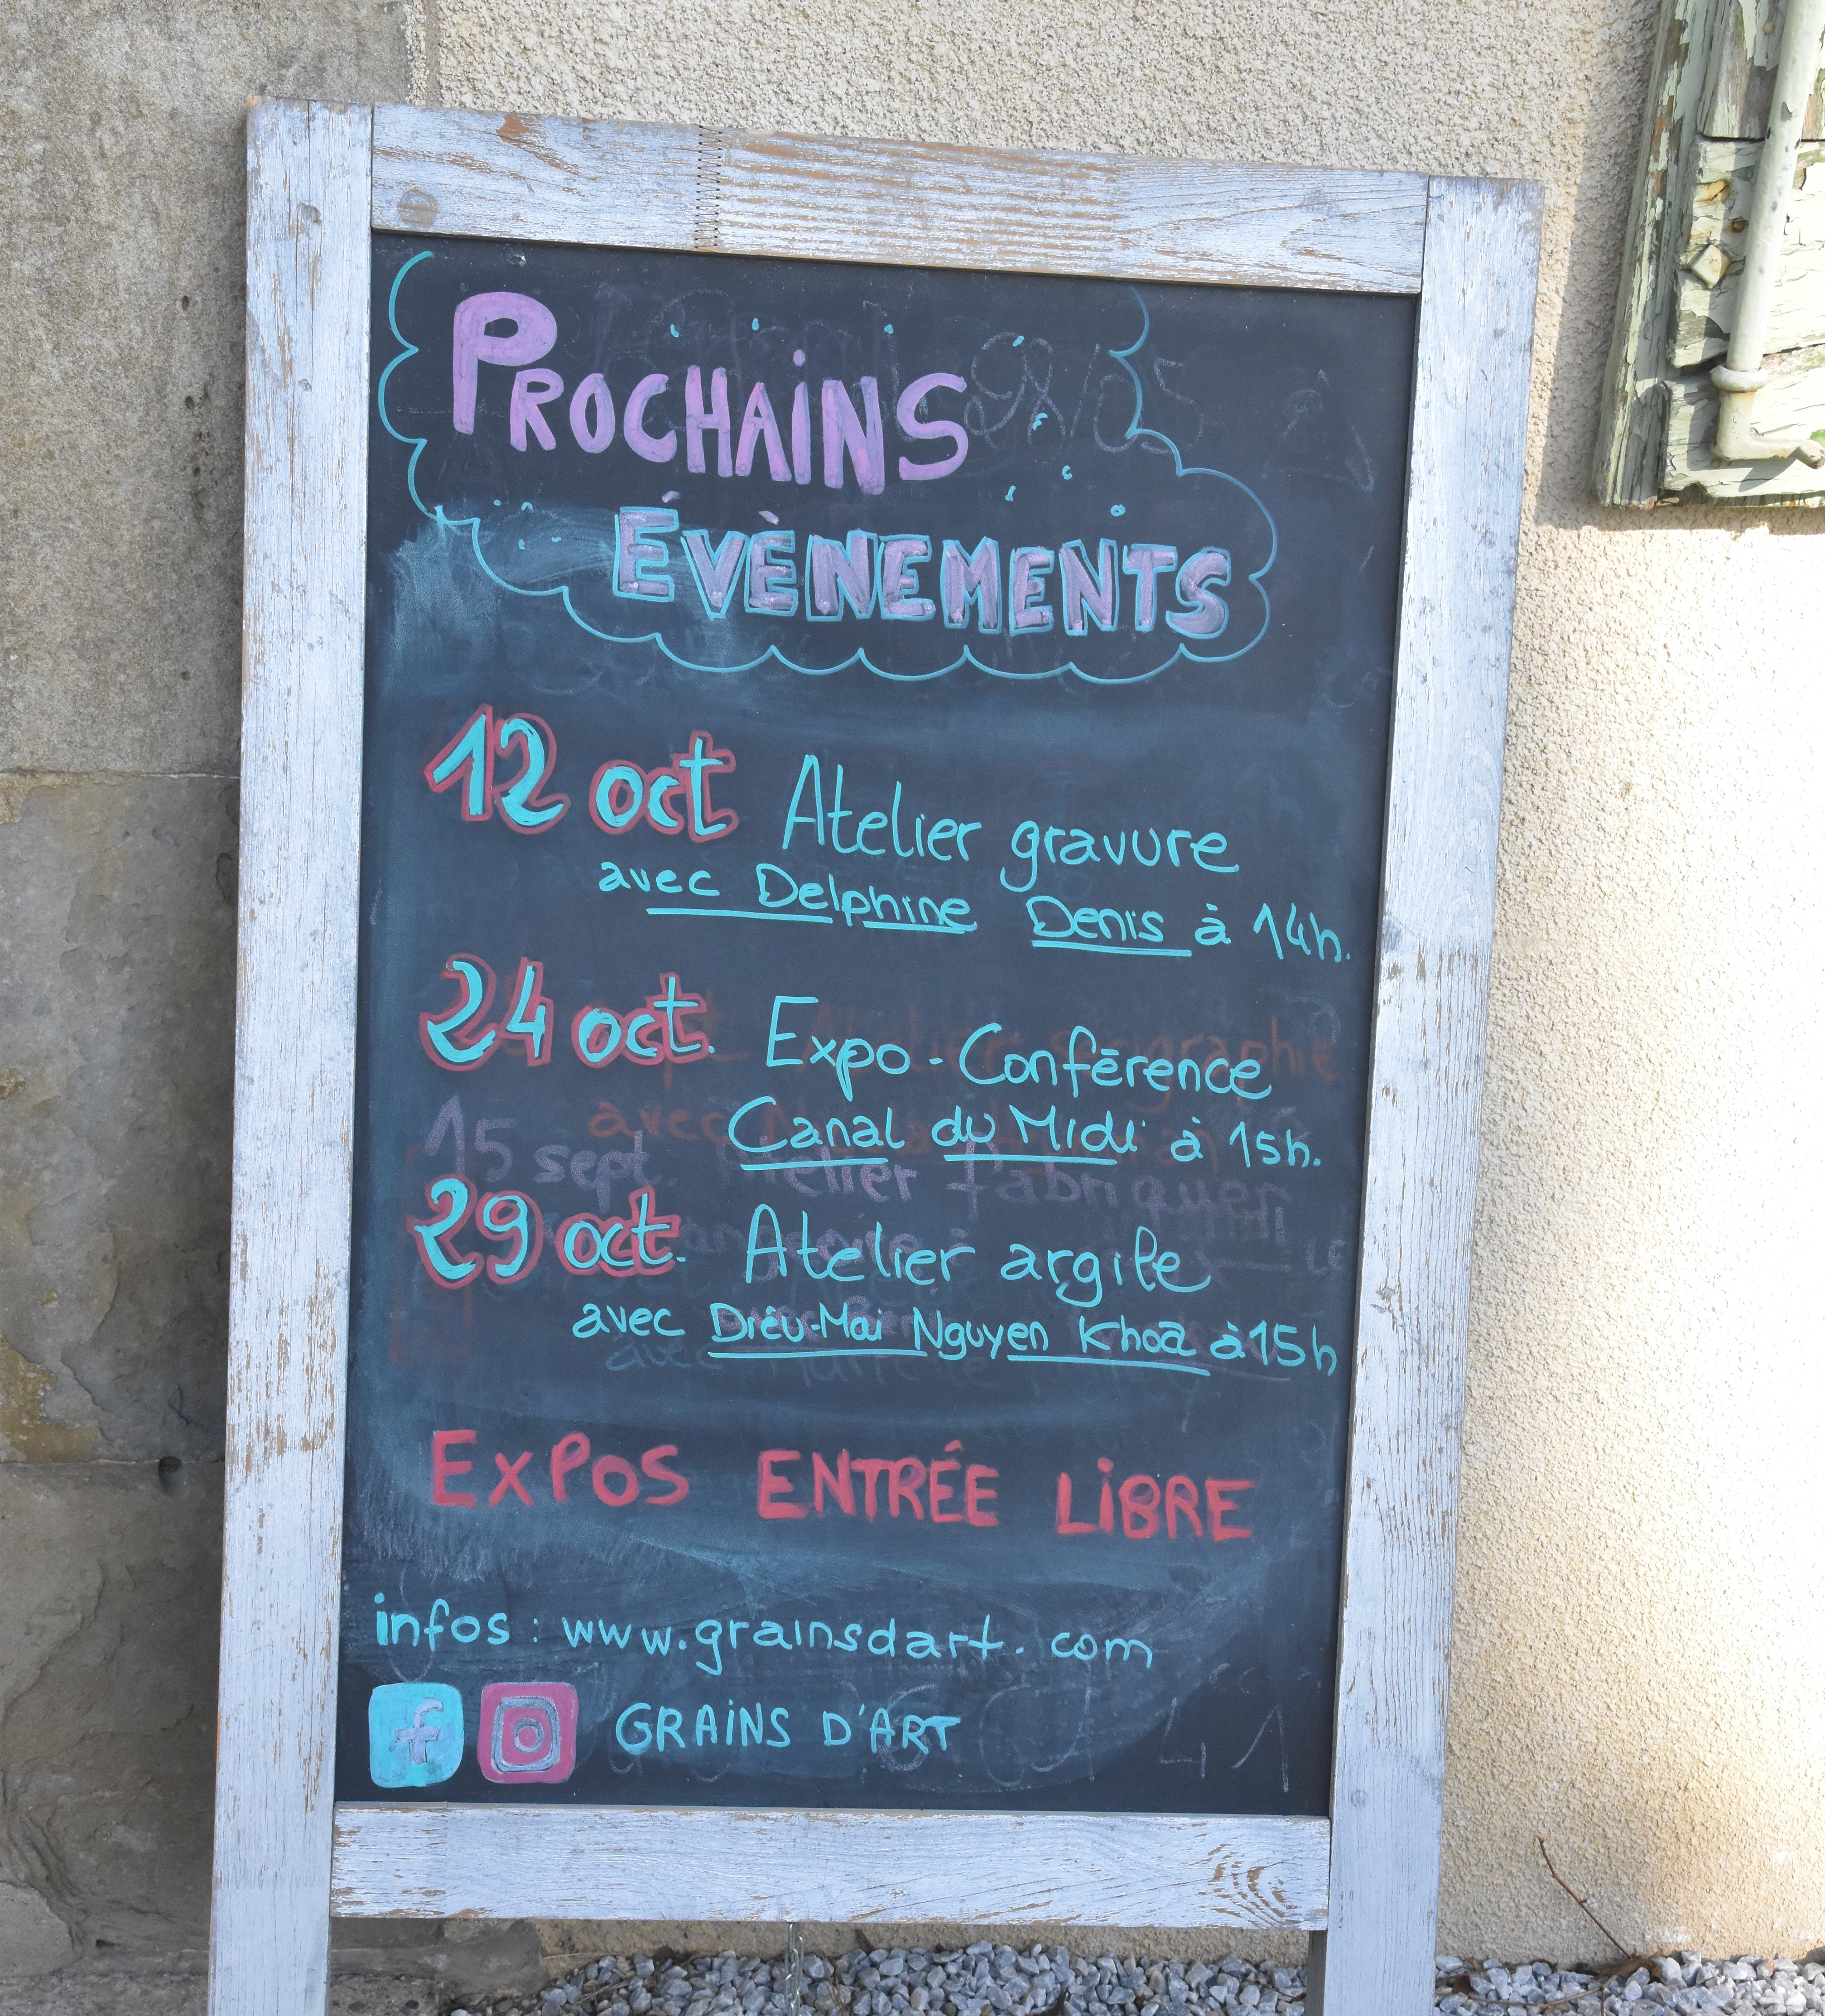 PROCHAINS
ÉVÈNEMENTS
12 oct Atelier gravure
avec Delphine Denis à 14h.
24 oct. Expo-Conférence
Canal du Midi à 15h.
15 sept. Atelier fabriquer
29 oct. Atelier argile
avec Diêu-Mai Nguyen Khoa à 15h
EXPOS ENTRÉE LIBRE
infos : www.grainsdart.com
GRAINS D'ART